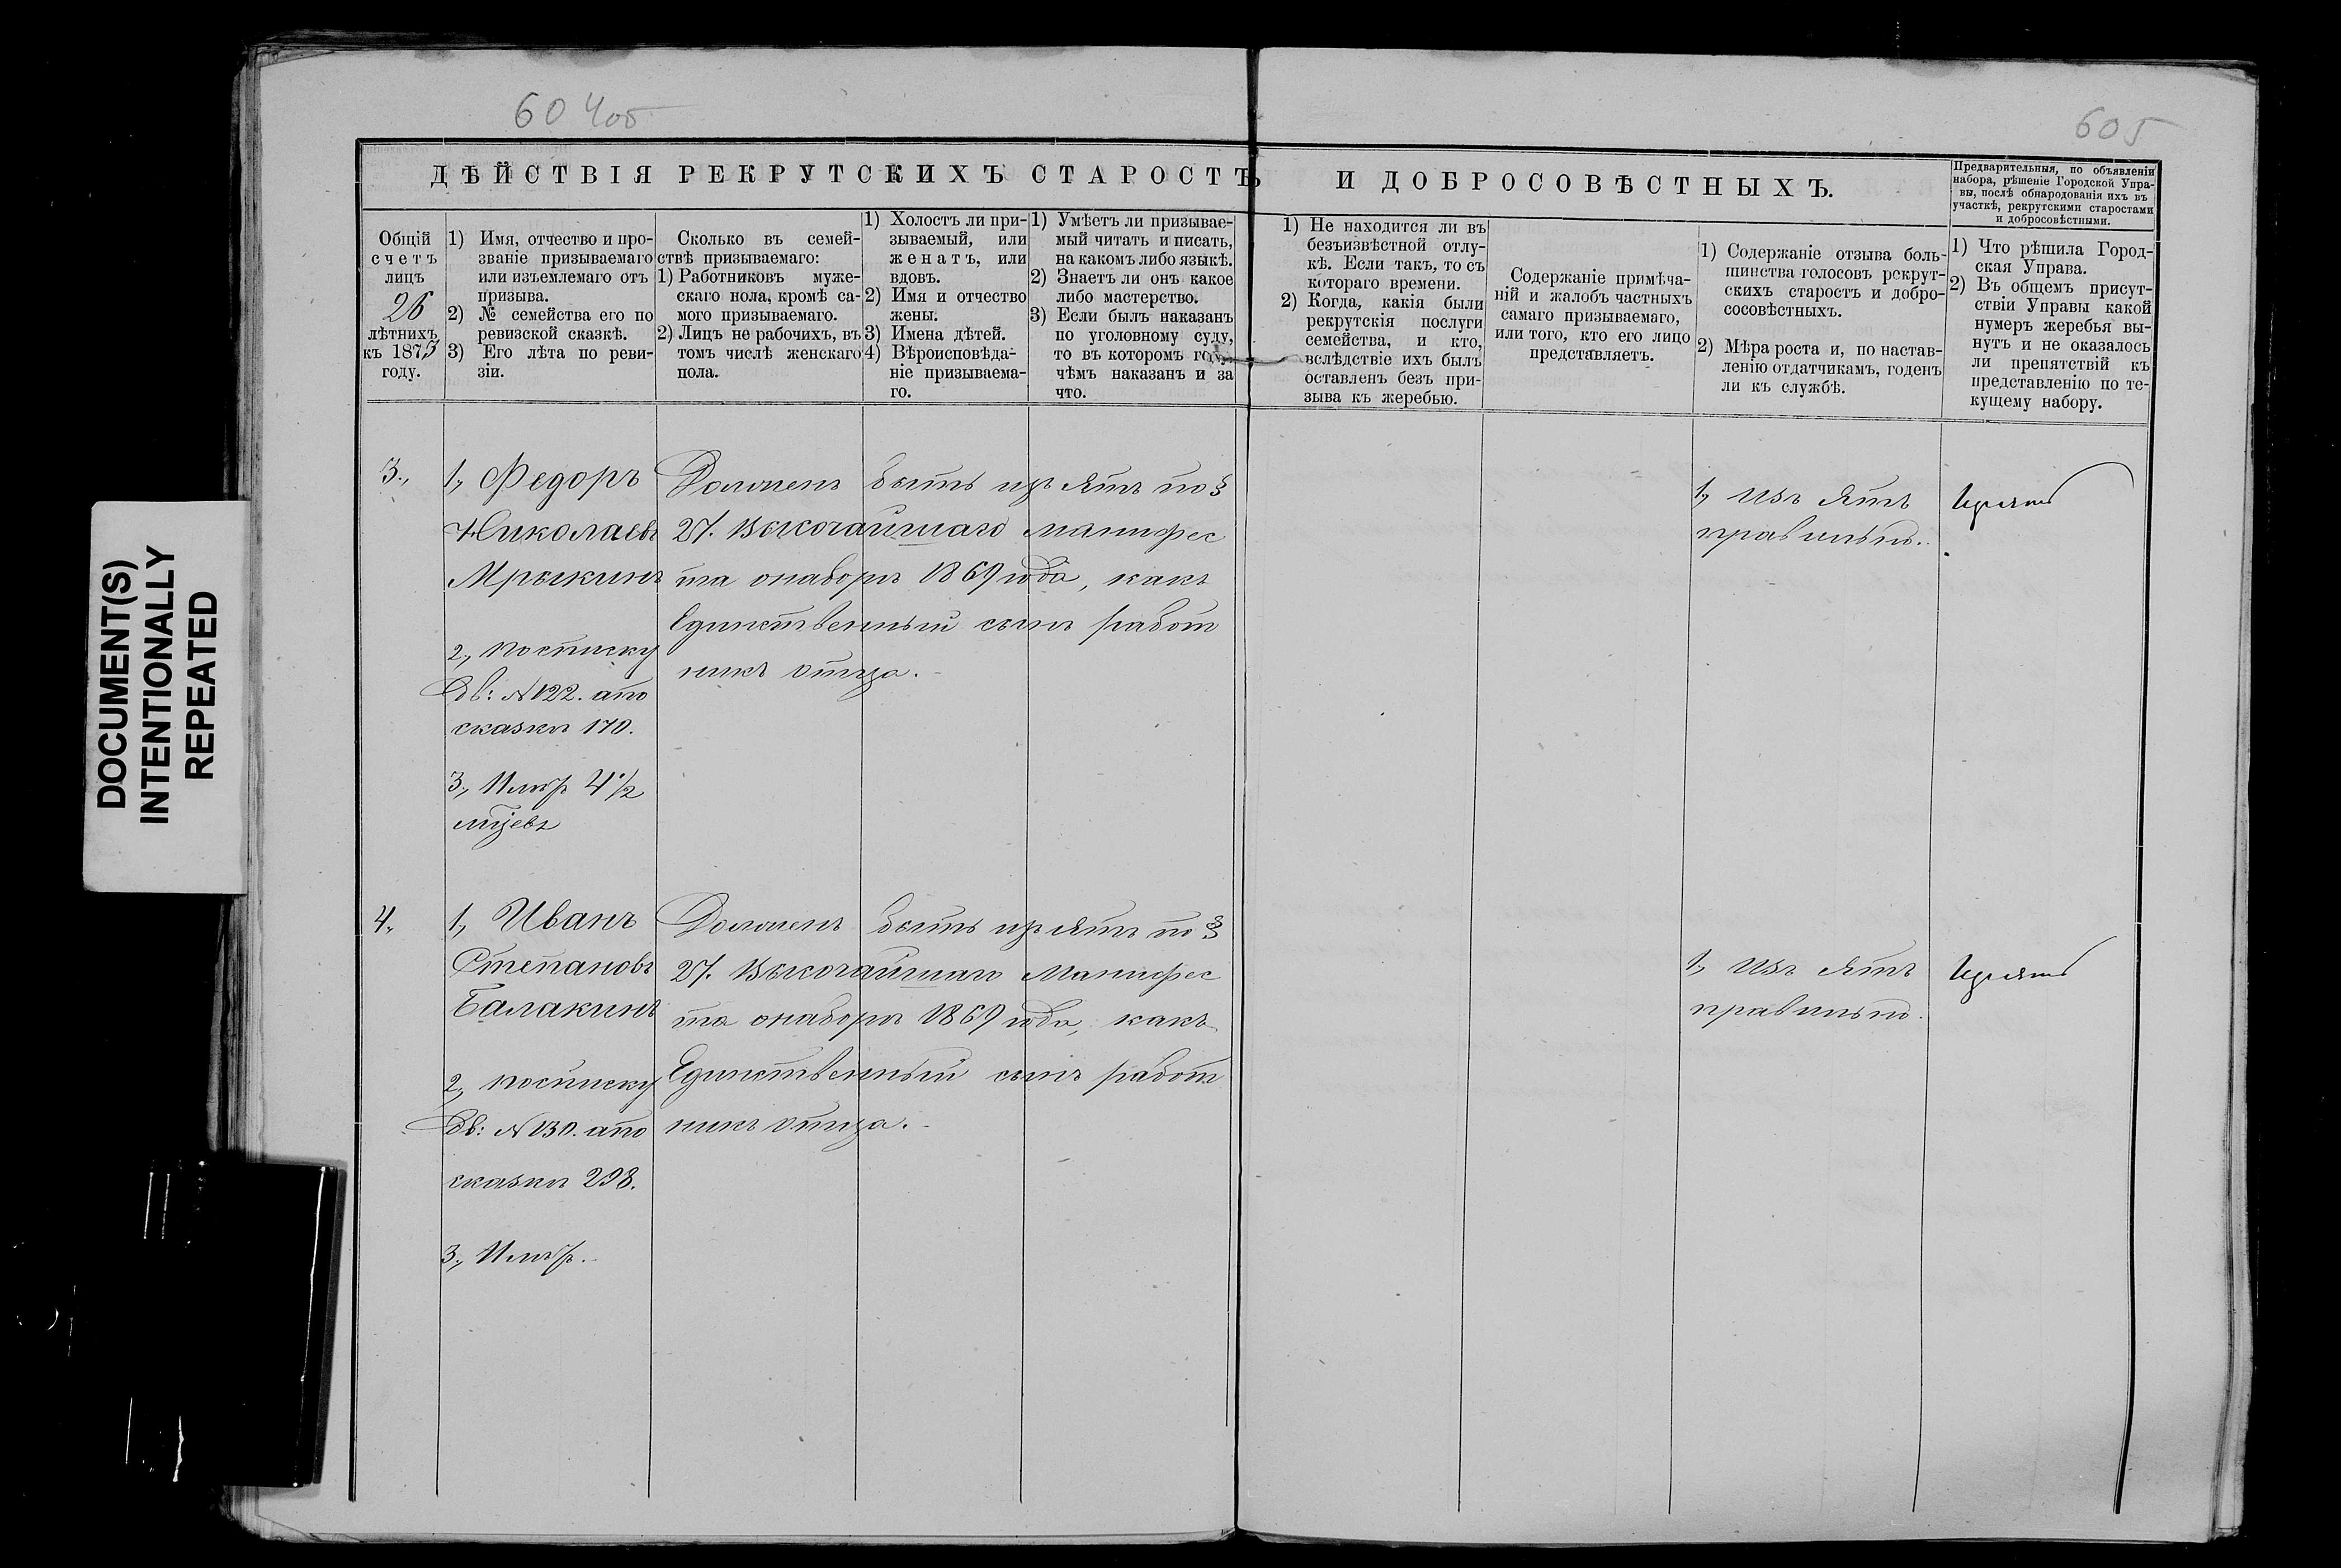 604об
605
DOCUMENT(S)
INTENTIONALLY
REPEATED
ДѢЙСТВІЯ РЕКРУТСКИХЪ СТАРОСТЪ И ДОБРОСОВѢСТНЫХЪ.
Предварительныя, по объявленіи
набора, рѣшеніе Городской Упра-
вы, послѣ обнародованія ихъ въ
участкѣ, рекрутскими старостами
и добросовѣстными.
Общій
счетъ
лицъ
26
лѣтнихъ
къ 1873
году.
1) Имя, отчество и про-
званіе призываемаго
или изъемлемаго отъ
призыва.
2) № семейства его по
ревизской сказкѣ.
3) Его лѣта по реви-
зіи.
Сколько въ семей-
ствѣ призываемаго:
1) Работниковъ муже-
скаго пола, кромѣ са-
мого призываемаго.
2) Лицъ не рабочихъ, въ
томъ числѣ женскаго
пола.
1) Холостъ ли при-
зываемый, или
женатъ, или
вдовъ.
2) Имя и отчество
жены.
3) Имена дѣтей.
4) Вѣроисповѣда-
ніе призываема-
го.
1) Умѣетъ ли призывае-
мый читать и писать,
на какомъ либо языкѣ.
2) Знаетъ ли онъ какое
либо мастерство.
3) Если былъ наказанъ
по уголовному суду,
то въ которомъ году,
чѣмъ наказанъ и за
что.
1) Не находится ли въ
безъизвѣстной отлу-
кѣ. Если такъ, то съ
котораго времени.
2) Когда, какія были
рекрутскія послуги
семейства, и кто,
вслѣдствіе ихъ былъ
оставленъ безъ при-
зыва къ жеребью.
Содержаніе примѣча-
ній и жалобъ частныхъ
самаго призываемаго,
или того, кто его лицо
представляетъ.
1) Содержаніе отзыва боль-
шинства голосовъ рекрут-
скихъ старостъ и добро-
сосовѣстныхъ.
2) Мѣра роста и, по настав-
ленію отдатчикамъ, годенъ
ли къ службѣ.
1) Что рѣшила Город-
ская Управа.
2) Въ общемъ присут-
ствіи Управы какой
нумеръ жеребья вы-
нутъ и не оказалось
ли препятствій къ
представленію по те-
кущему набору.
3.,
1, Федоръ
Николаевъ
Мрыкинъ
2, По списку
№ 122. а по
сказкѣ 170.
3, 4 1/2
Долженъ быть изъятъ по §
27. Высочайшаго манифес
та о наборѣ 1869 года, какъ
Единственный сынъ работ
никъ отца.
1, Изъятъ
правильно.
Изъятъ
4.
1, Иванъ
Степановъ
Балакинъ
2, По списку
№ 130. а по
сказкѣ 298.
3,
Долженъ быть изъятъ по §
27. Высочайшаго Манифес
та о наборѣ 1869 года, какъ
Единственный сынъ работ
никъ отца.
1, Изъятъ
правильно.
Изъятъ